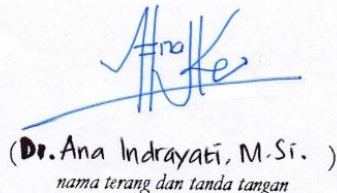 (Dr. Ana Indrayati, M.Si. )
nama terang dan tanda tangan